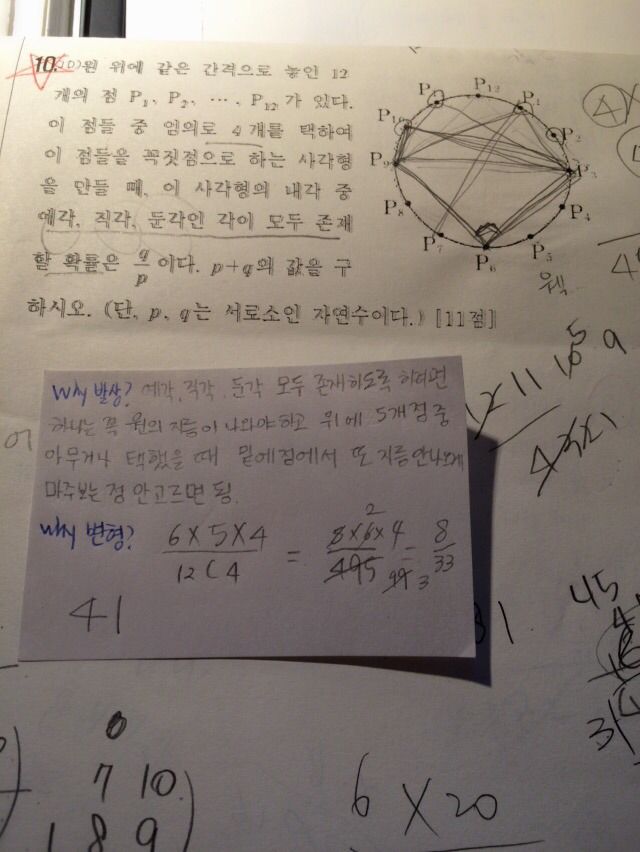 10. 원 위에 같은 간격으로 놓인 12
개의 점 P₁, P₂, …, P₁₂가 있다.
이 점들 중 임의로 4개를 택하여
이 점들을 꼭짓점으로 하는 사각형
을 만들 때, 이 사각형의 내각 중
예각, 직각, 둔각인 각이 모두 존재
할 확률은 q/p 이다. p+q의 값을 구
하시오. (단, p, q는 서로소인 자연수이다.) [11점]
P₁₂
P₁
P₂
P₃
P₄
P₅
P₆
P₇
P₈
P₉
P₁₀
P₁₁
Why 발상? 예각, 직각, 둔각 모두 존재하도록 하려면
하나는 꼭 원의 지름이 나와야하고 위에 5개 점 중
아무거나 택했을 때 밑에점에서 또 지름 안나오게
마주보는 점 안고르면 됨.
Why 변형? 6×5×4 / 12C4 = 8×6×4 / 495 = 8/33
2
99 3
41
31
45
0
7 10
1 8 9
6 × 20